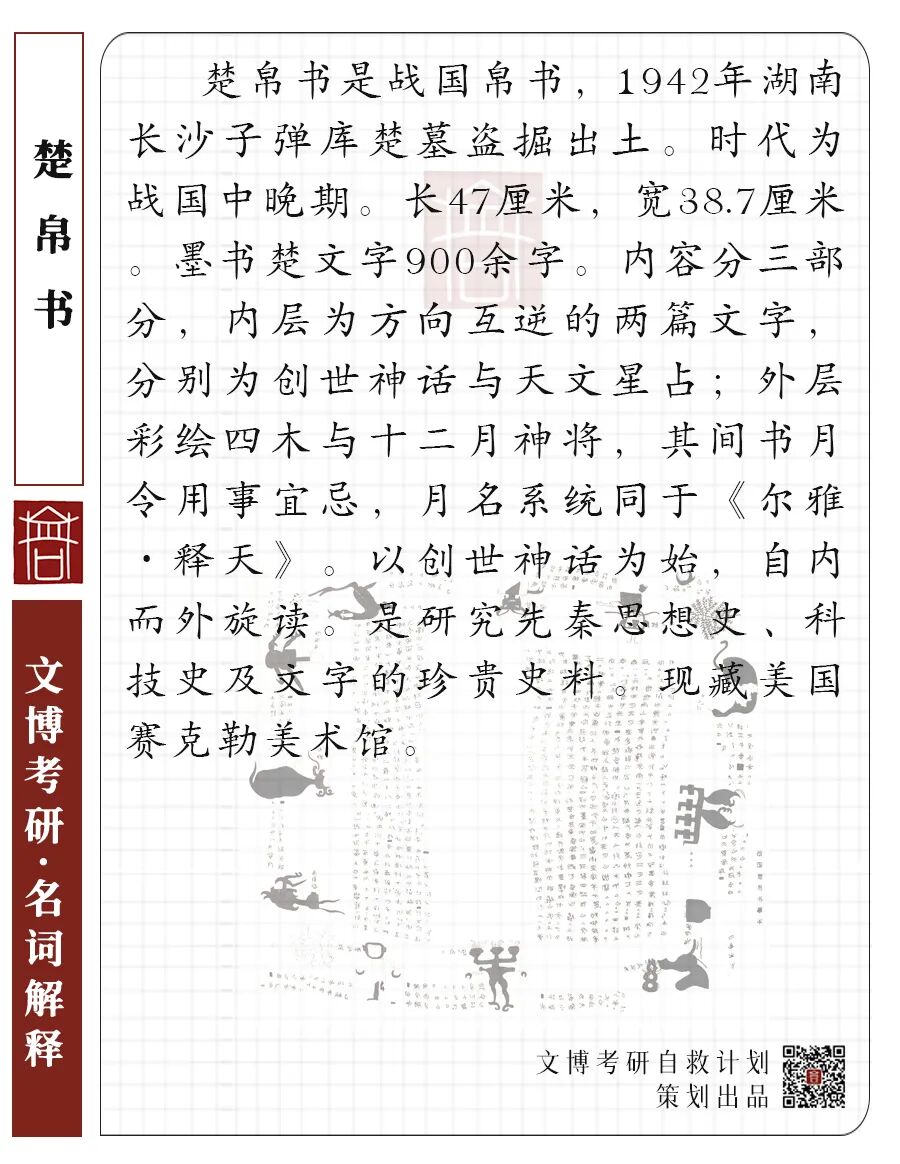 楚帛书
文博考研·名词解释
楚帛书是战国帛书，1942年湖南
长沙子弹库楚墓盗掘出土。时代为
战国中晚期。长47厘米，宽38.7厘米
。墨书楚文字900余字。内容分三部
分，内层为方向互逆的两篇文字，
分别为创世神话与天文星占；外层
彩绘四木与十二月神将，其间书月
令用事宜忌，月名系统同于《尔雅
·释天》。以创世神话为始，自内
而外旋读。是研究先秦思想史、科
技史及文字的珍贵史料。现藏美国
赛克勒美术馆。
文博考研自救计划
策划出品